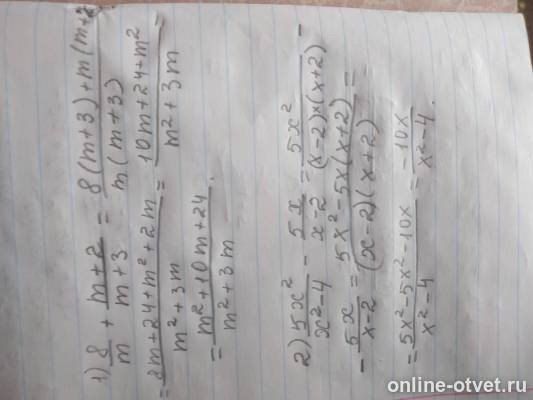 1) 8/m + (m+2)/(m+3) = (8(m+3)+m(m+2))/(m(m+3))
= (8m+24+m²+2m)/(m²+3m) = (10m+24+m²)/(m²+3m) =
= (m²+10m+24)/(m²+3m).
2) 5x²/(x²-4) - 5x/(x-2) = 5x²/((x-2)×(x+2)) -
- 5x/(x-2) = (5x²-5x(x+2))/((x-2)(x+2)) =
= (5x²-5x²-10x)/(x²-4) = -10x/(x²-4).
online-otvet.ru